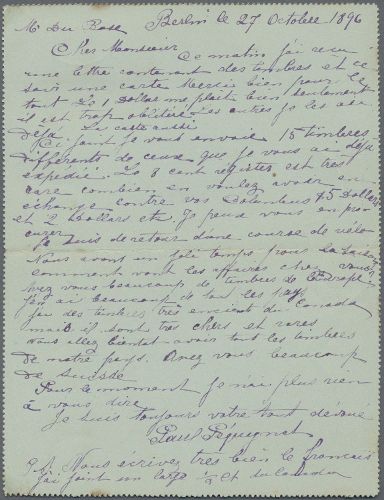 Mr Du Bose Berlin le 27 Octobre 1896
Cher Monsieur
Ce matin j'ai reçu
une lettre contenant des timbres et ce
soir une carte Merci bien pour le
tout Le 1 Dollar me plait bien seulement
il est trop oblitéré. Les autres je les ai
déjà. La carte aussi
Ci joint je vous envoie 15 timbres
différents de ceux que je vous ai déjà
expédié. Le 8 cent register est très
rare combien en voulez avoir en
échange contre vos Colombus 5 Dollars
et 2 Dollars etc Je peux vous en pro
curer
Je suis de retour d'une course de velo
Nous avons un joli temps pour la saison
comment vont les affaires chez vous
Avez vous beaucoup de timbres de l'Europe
J'en ai beaucoup de tout les pays
j'ai des timbres très ancient du Canada
mais il sont très chers et rares
vous allez bientôt avoir tout les timbres
de notre pays. Avez vous beaucoup
de Suisse
Pour le moment je n'ai plus rien
à vous dire
Je suis toujours votre tout dévoué
Paul Péquignat
Vous écrivez très bien le français
j'ai joint un large ct du Canada